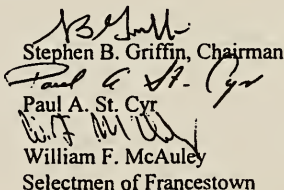 Stephen B. Griffin, Chairman
Paul A St. Cyr
Paul A. St. Cyr
William F. McAuley
Selectmen of Francestown